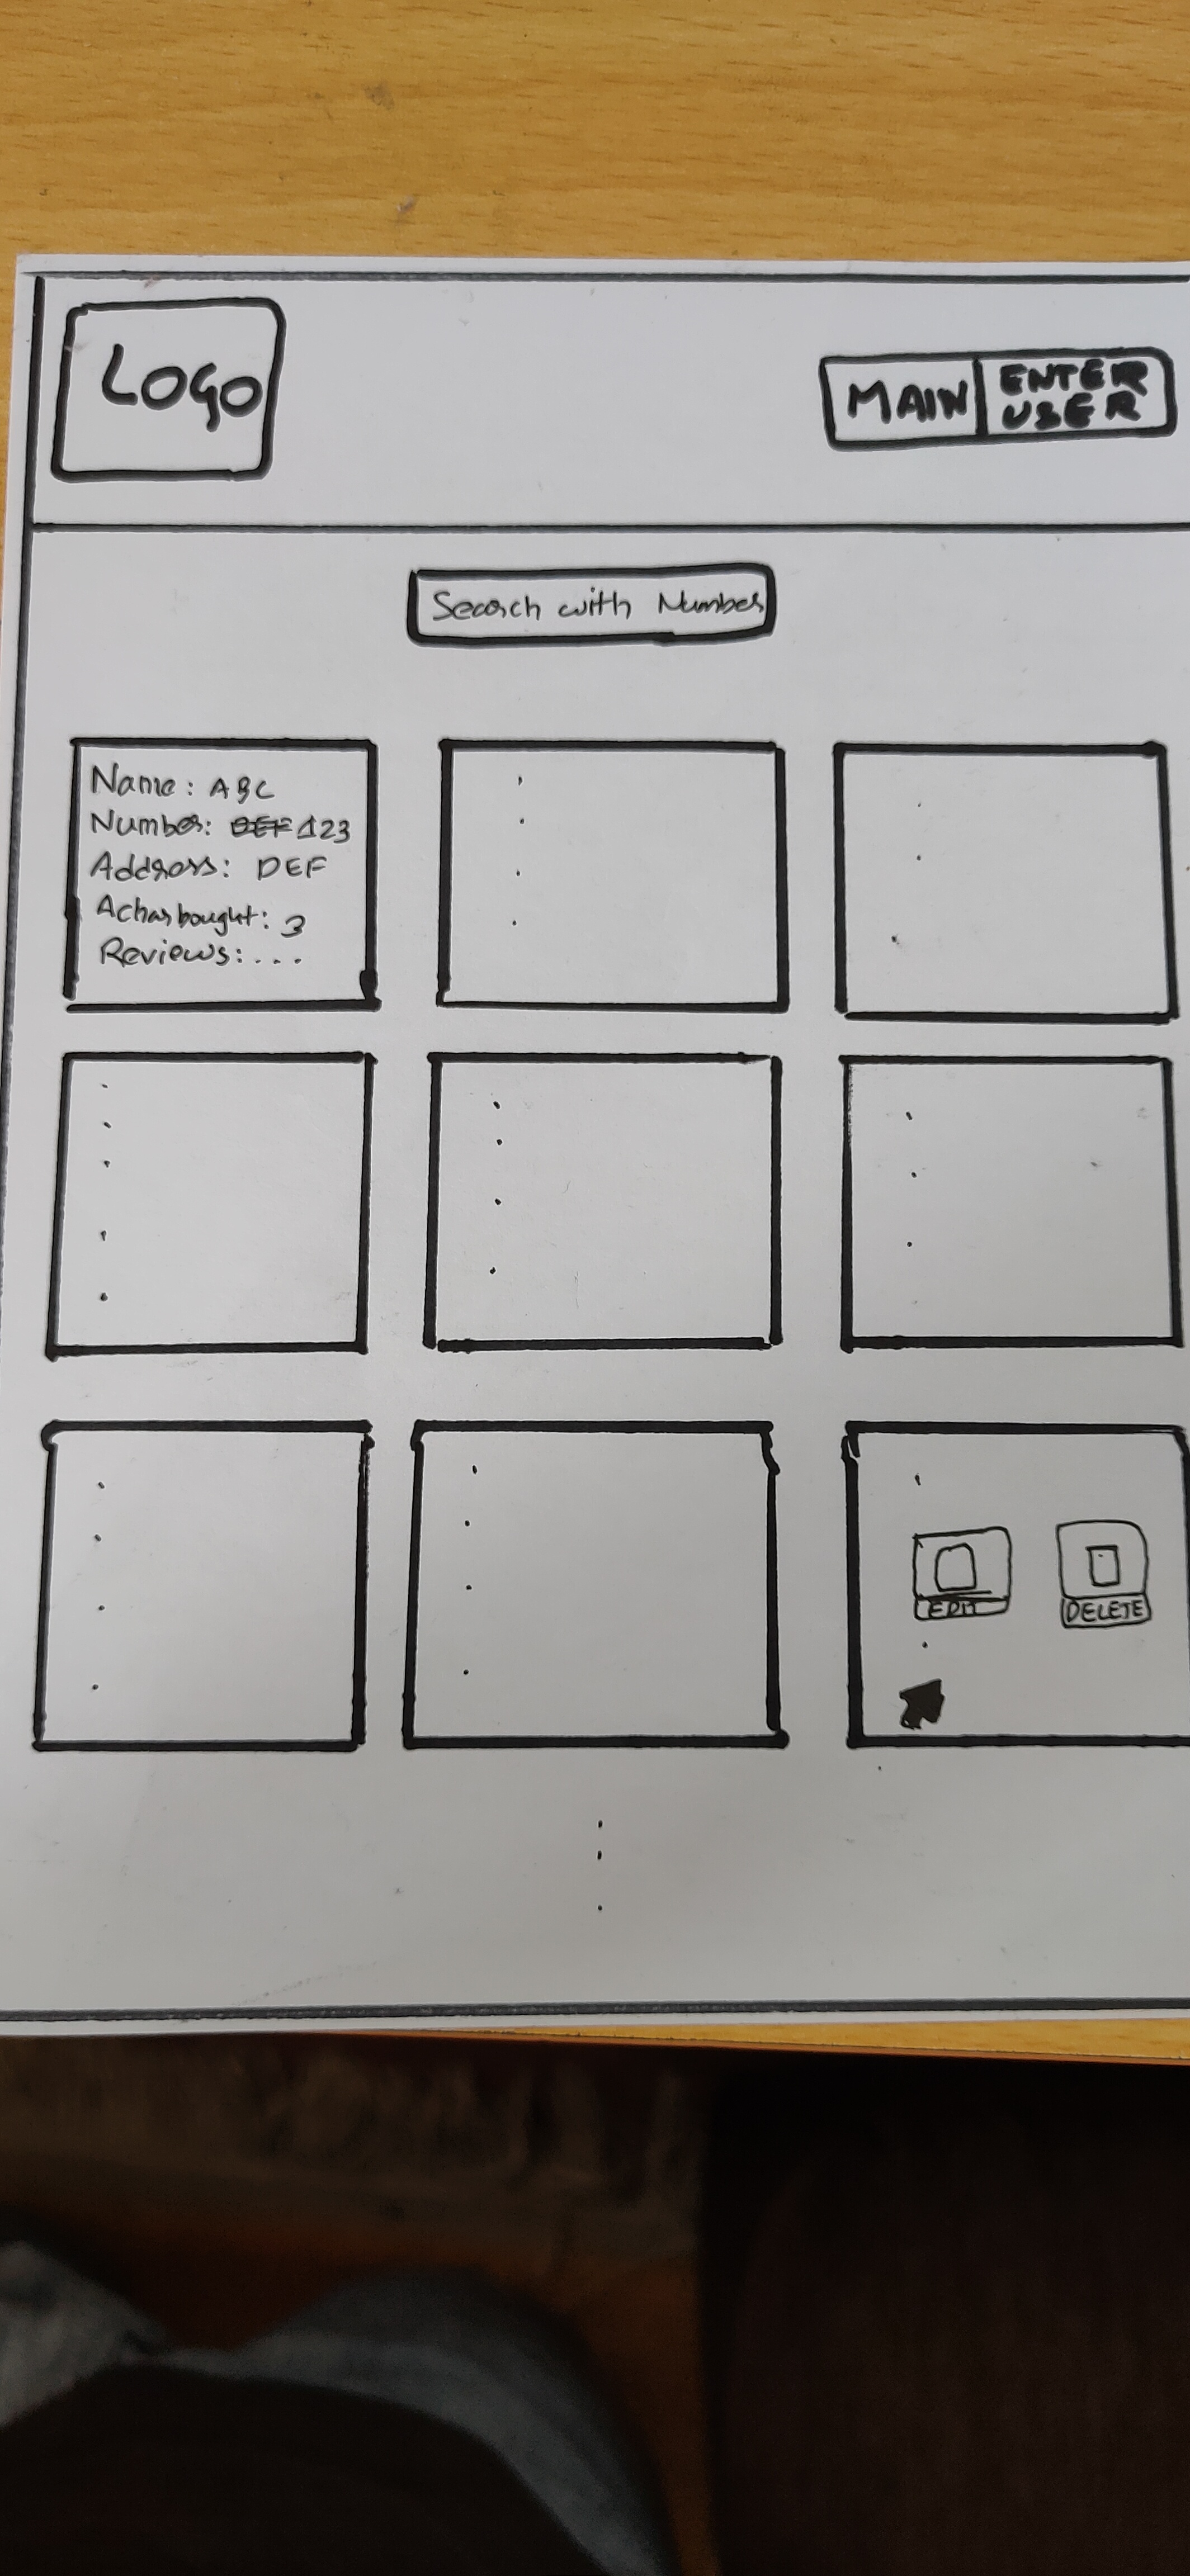 LOGO
MAIN
ENTER
USER
Search with Number
Name: ABC
Number: DEF 123
Address: DEF
Achar bought: 3
Reviews:...
EDIT
DELETE